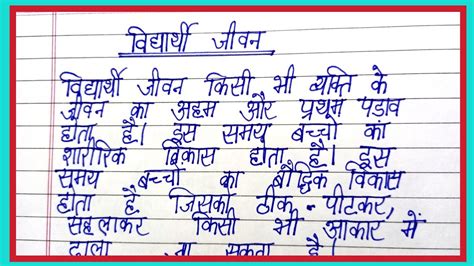 विद्यार्थी जीवन
विद्यार्थी जीवन किसी भी व्यक्ति के
जीवन का अहम और प्रथम पड़ाव
होता है। इस समय बच्चो का
शारीरिक विकास होता है। इस
समय बच्चो का बौद्धिक विकास
होता है जिसको ठोक-पीटकर,
सहलाकर किसी भी आकार में
ढाला जा सकता है।